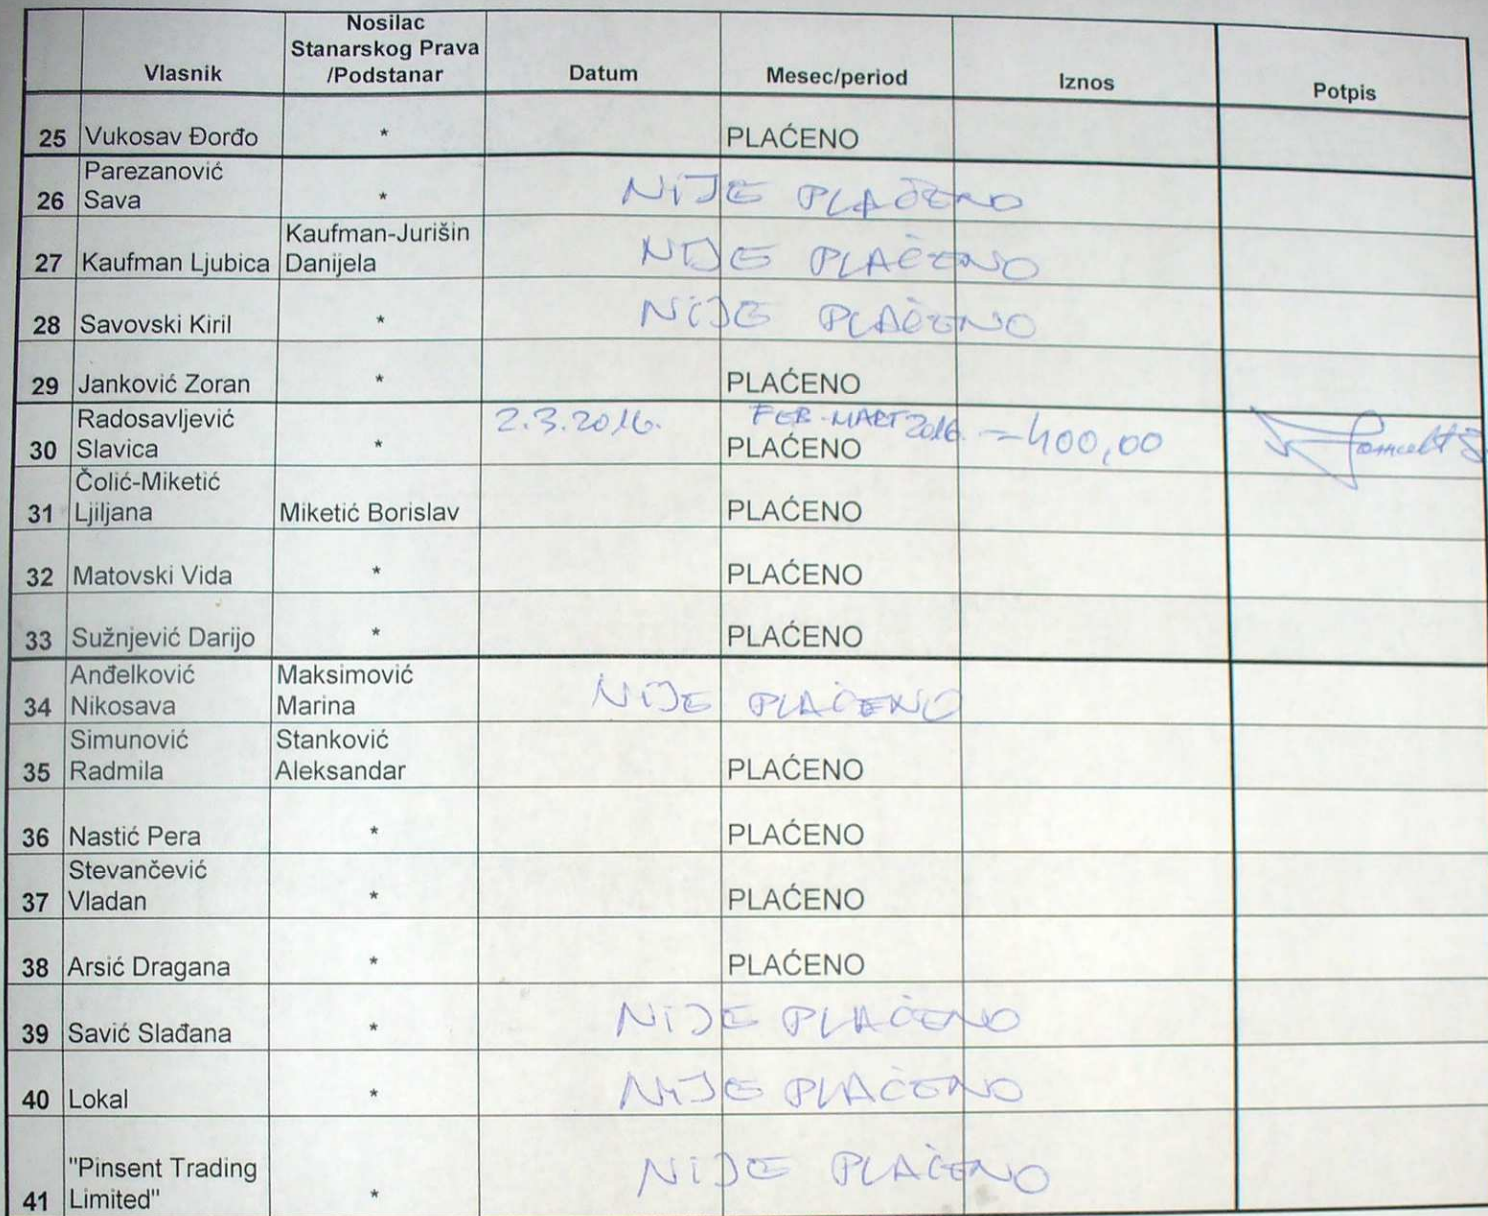 Vlasnik Nosilac Stanarskog Prava /Podstanar Datum Mesec/period Iznos Potpis
25 Vukosav Đorđo * PLAĆENO
26 Parezanović Sava * NIJE PLAĆENO
27 Kaufman Ljubica Kaufman-Jurišin Danijela NIJE PLAĆENO
28 Savovski Kiril * NIJE PLAĆENO
29 Janković Zoran * PLAĆENO
30 Radosavljević Slavica * 2.3.2016. FEB-MART 2016. PLAĆENO =400,00
31 Čolić-Miketić Ljiljana Miketić Borislav PLAĆENO
32 Matovski Vida * PLAĆENO
33 Sužnjević Darijo * PLAĆENO
34 Anđelković Nikosava Maksimović Marina NIJE PLAĆENO
35 Simunović Radmila Stanković Aleksandar PLAĆENO
36 Nastić Pera * PLAĆENO
37 Stevančević Vladan * PLAĆENO
38 Arsić Dragana * PLAĆENO
39 Savić Slađana * NIJE PLAĆENO
40 Lokal * NIJE PLAĆENO
41 "Pinsent Trading Limited" * NIJE PLAĆENO